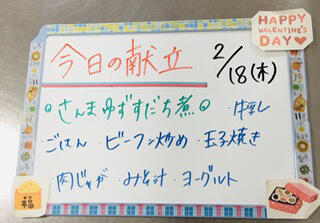 HAPPY
VALENTINE'S
DAY
今日の献立 2/18(木)
さんまゆずすだち煮 ・牛乳
ごはん・ビーフン炒め・玉子焼き
肉じゃが・みそ汁・ヨーグルト
福